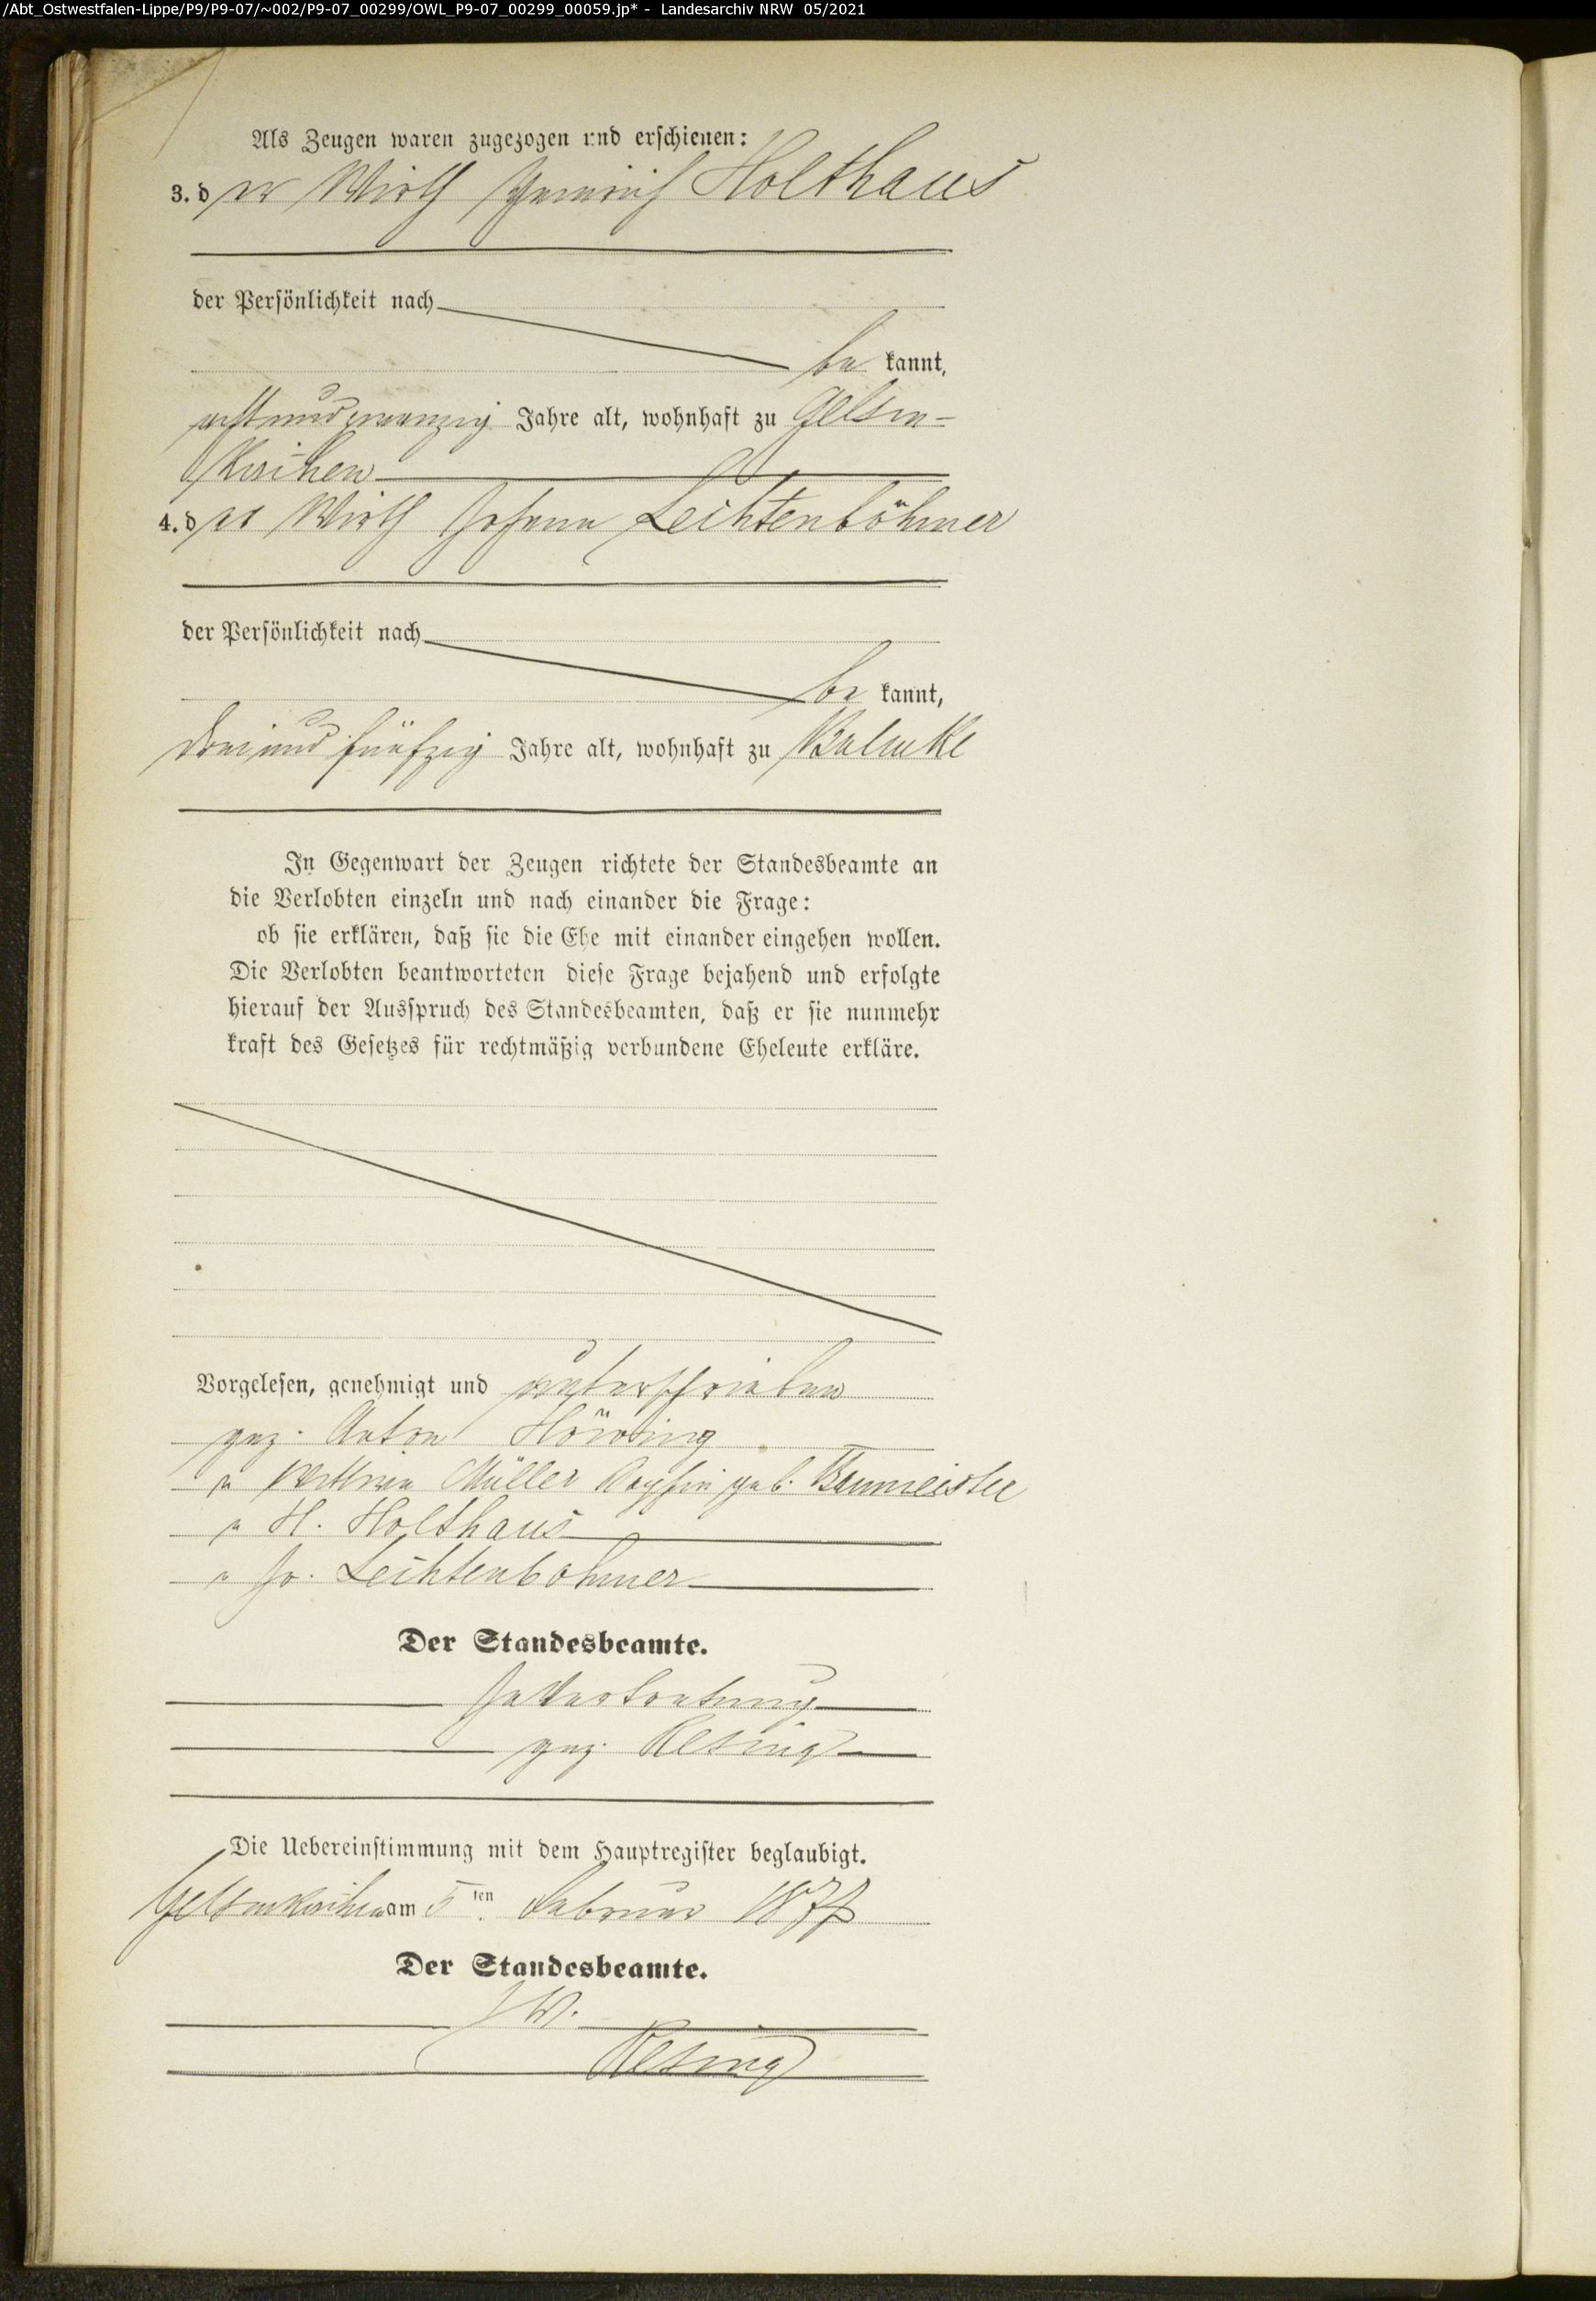 /Abt_Ostwestfalen-Lippe/P9/P9-07/~002/P9-07_00299/OWL_P9-07_00299_00059.jp* - Landesarchiv NRW 05/2021
Als Zeugen waren zugezogen und erschienen:
3. der Wirth Heinrich Holthaus
der Persönlichkeit nach
be kannt,
achtundzwanzig Jahre alt, wohnhaft zu Gelsen-
kirchen
4. der Wirth Johann Leichtenböhmer
der Persönlichkeit nach
be kannt,
dreiundfünfzig Jahre alt, wohnhaft zu Bulmke
In Gegenwart der Zeugen richtete der Standesbeamte an
die Verlobten einzeln und nach einander die Frage:
ob sie erklären, daß sie die Ehe mit einander eingehen wollen.
Die Verlobten beantworteten diese Frage bejahend und erfolgte
hierauf der Ausspruch des Standesbeamten, daß er sie nunmehr
kraft des Gesetzes für rechtmäßig verbundene Eheleute erkläre.
Vorgelesen, genehmigt und unterschrieben
gez. Anton Höwing
" Wittwe Müller Sophie geb. Baumeister
" H. Holthaus
" Jo. Leichtenbohmer
Der Standesbeamte.
In Vertretung
gez. Resing
Die Uebereinstimmung mit dem Hauptregister beglaubigt.
Gelsenkirchen am 5ten Februar 187
Der Standesbeamte.
I V.
Resing